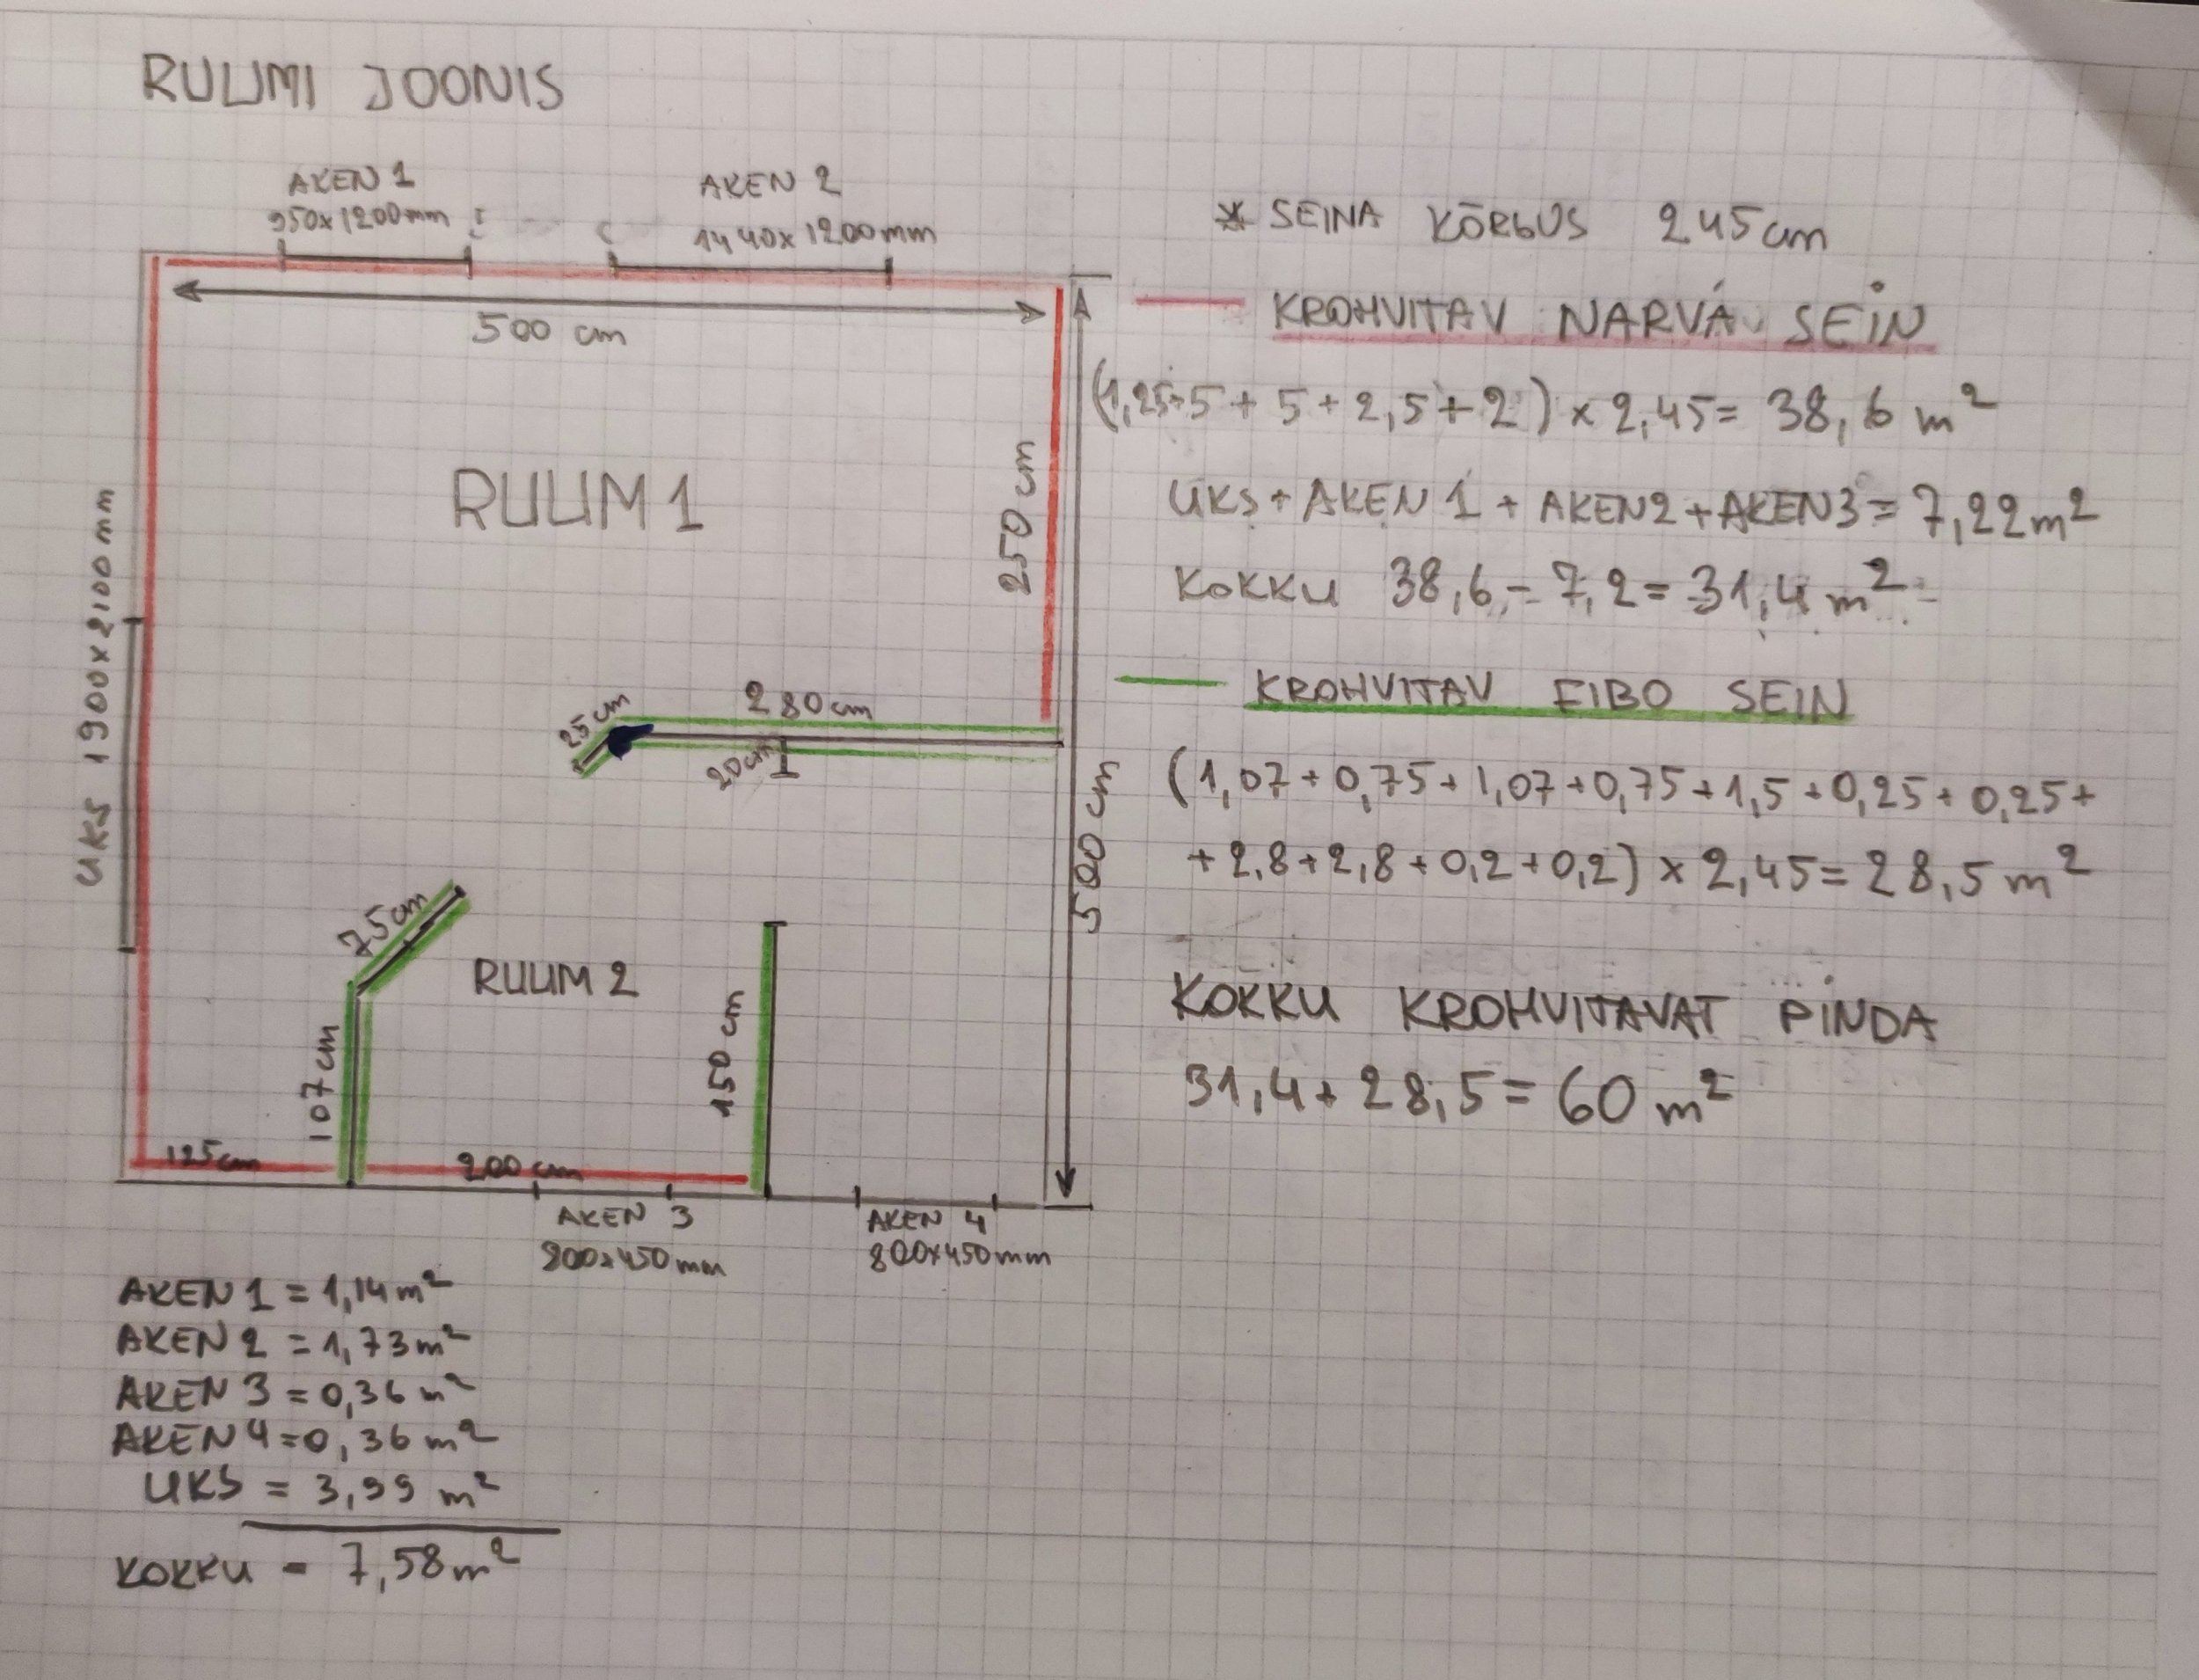 RUUMI JOONIS
AKEN 1
950x1200mm
AKEN 2
1440x1200mm
500 cm
RUUM 1
250 cm
UKS 1900x2100 mm
25 cm
280 cm
20 cm
500 cm
75 cm
RUUM 2
107 cm
150 cm
125 cm
200 cm
AKEN 3
800x450 mm
AKEN 4
800x450 mm
AKEN 1 = 1,14 m²
AKEN 2 = 1,73 m²
AKEN 3 = 0,36 m²
AKEN 4 = 0,36 m²
UKS = 3,99 m²
KOKKU = 7,58 m²
* SEINA KÕRGUS 245 cm
KROHVITAV NARVA SEIN
(1,25+5 + 5 + 2,5 + 2) x 2,45 = 38,6 m²
UKS + AKEN 1 + AKEN 2 + AKEN 3 = 7,22 m²
KOKKU 38,6 - 7,2 = 31,4 m²
KROHVITAV FIBO SEIN
(1,07 + 0,75 + 1,07 + 0,75 + 1,5 + 0,25 + 0,25 +
+ 2,8 + 2,8 + 0,2 + 0,2) x 2,45 = 28,5 m²
KOKKU KROHVITAVAT PINDA
31,4 + 28,5 = 60 m²